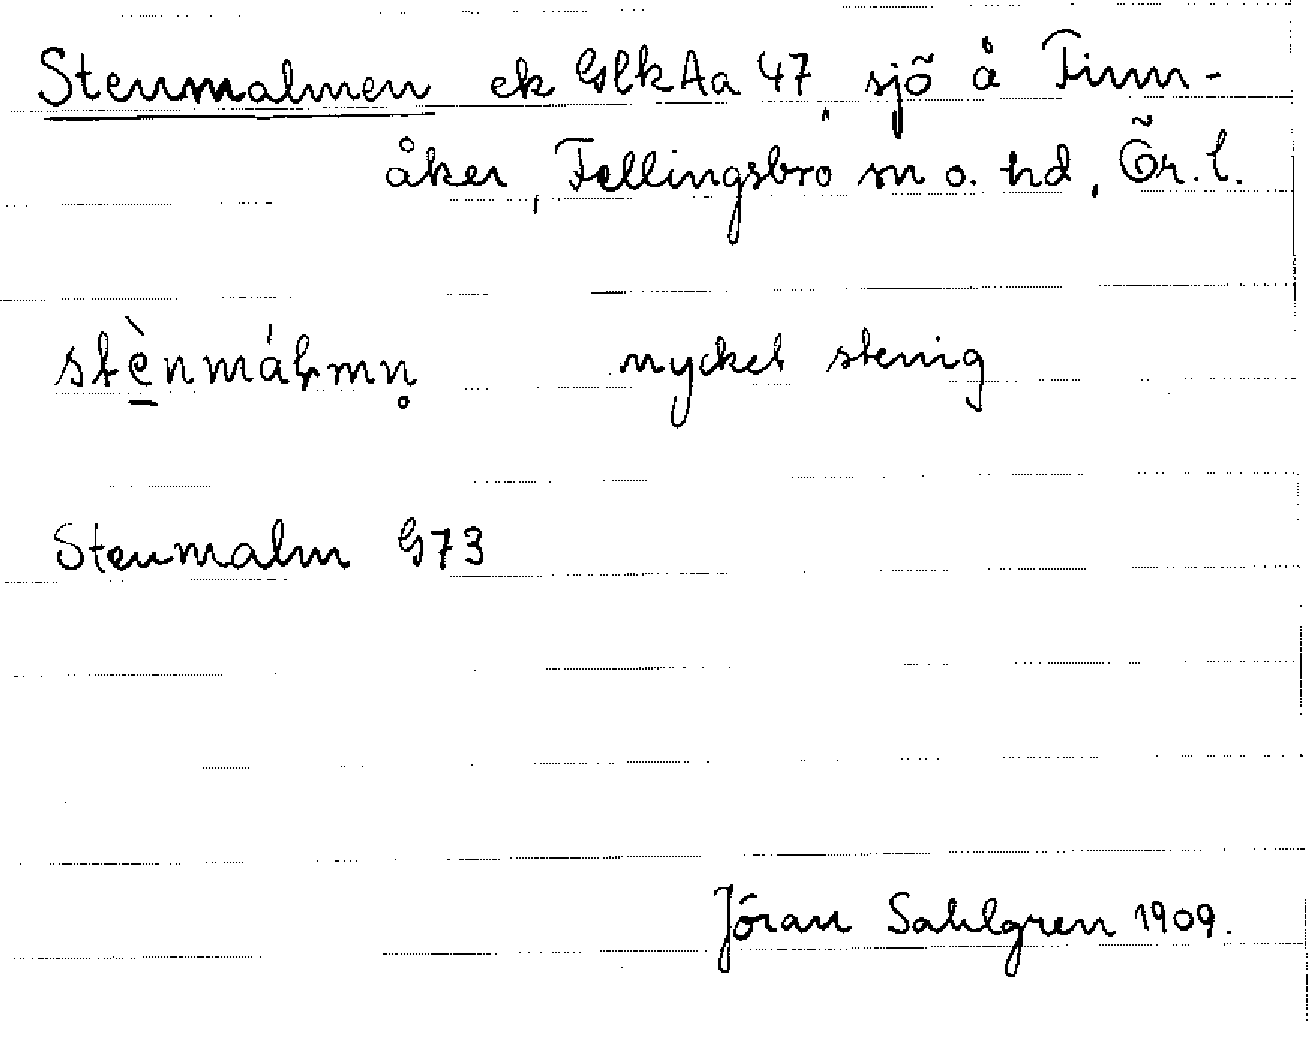 Stenmalmen ek GlkAa 47, sjö å Finn-
åker, Fellingsbro sn o. hd, Ör. l.
stènmáɫmn̥ mycket stenig
Stenmalm G73
Jöran Sahlgren 1909.